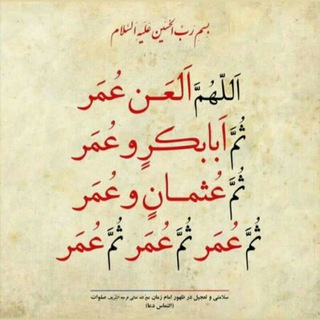 بسم رب الحسین علیه السلام
اَللّهُمَّ اَلعَن عُمَر
ثُمَّ اَبابکرٍ و عُمَر
ثُمَّ عُثمانٍ و عُمَر
ثُمَّ عُمَر ثُمَّ عُمَر ثُمَّ عُمَر
سلامتی و تعجیل در ظهور امام زمان عجل الله تعالی فرجه الشریف صلوات
(التماس دعا)